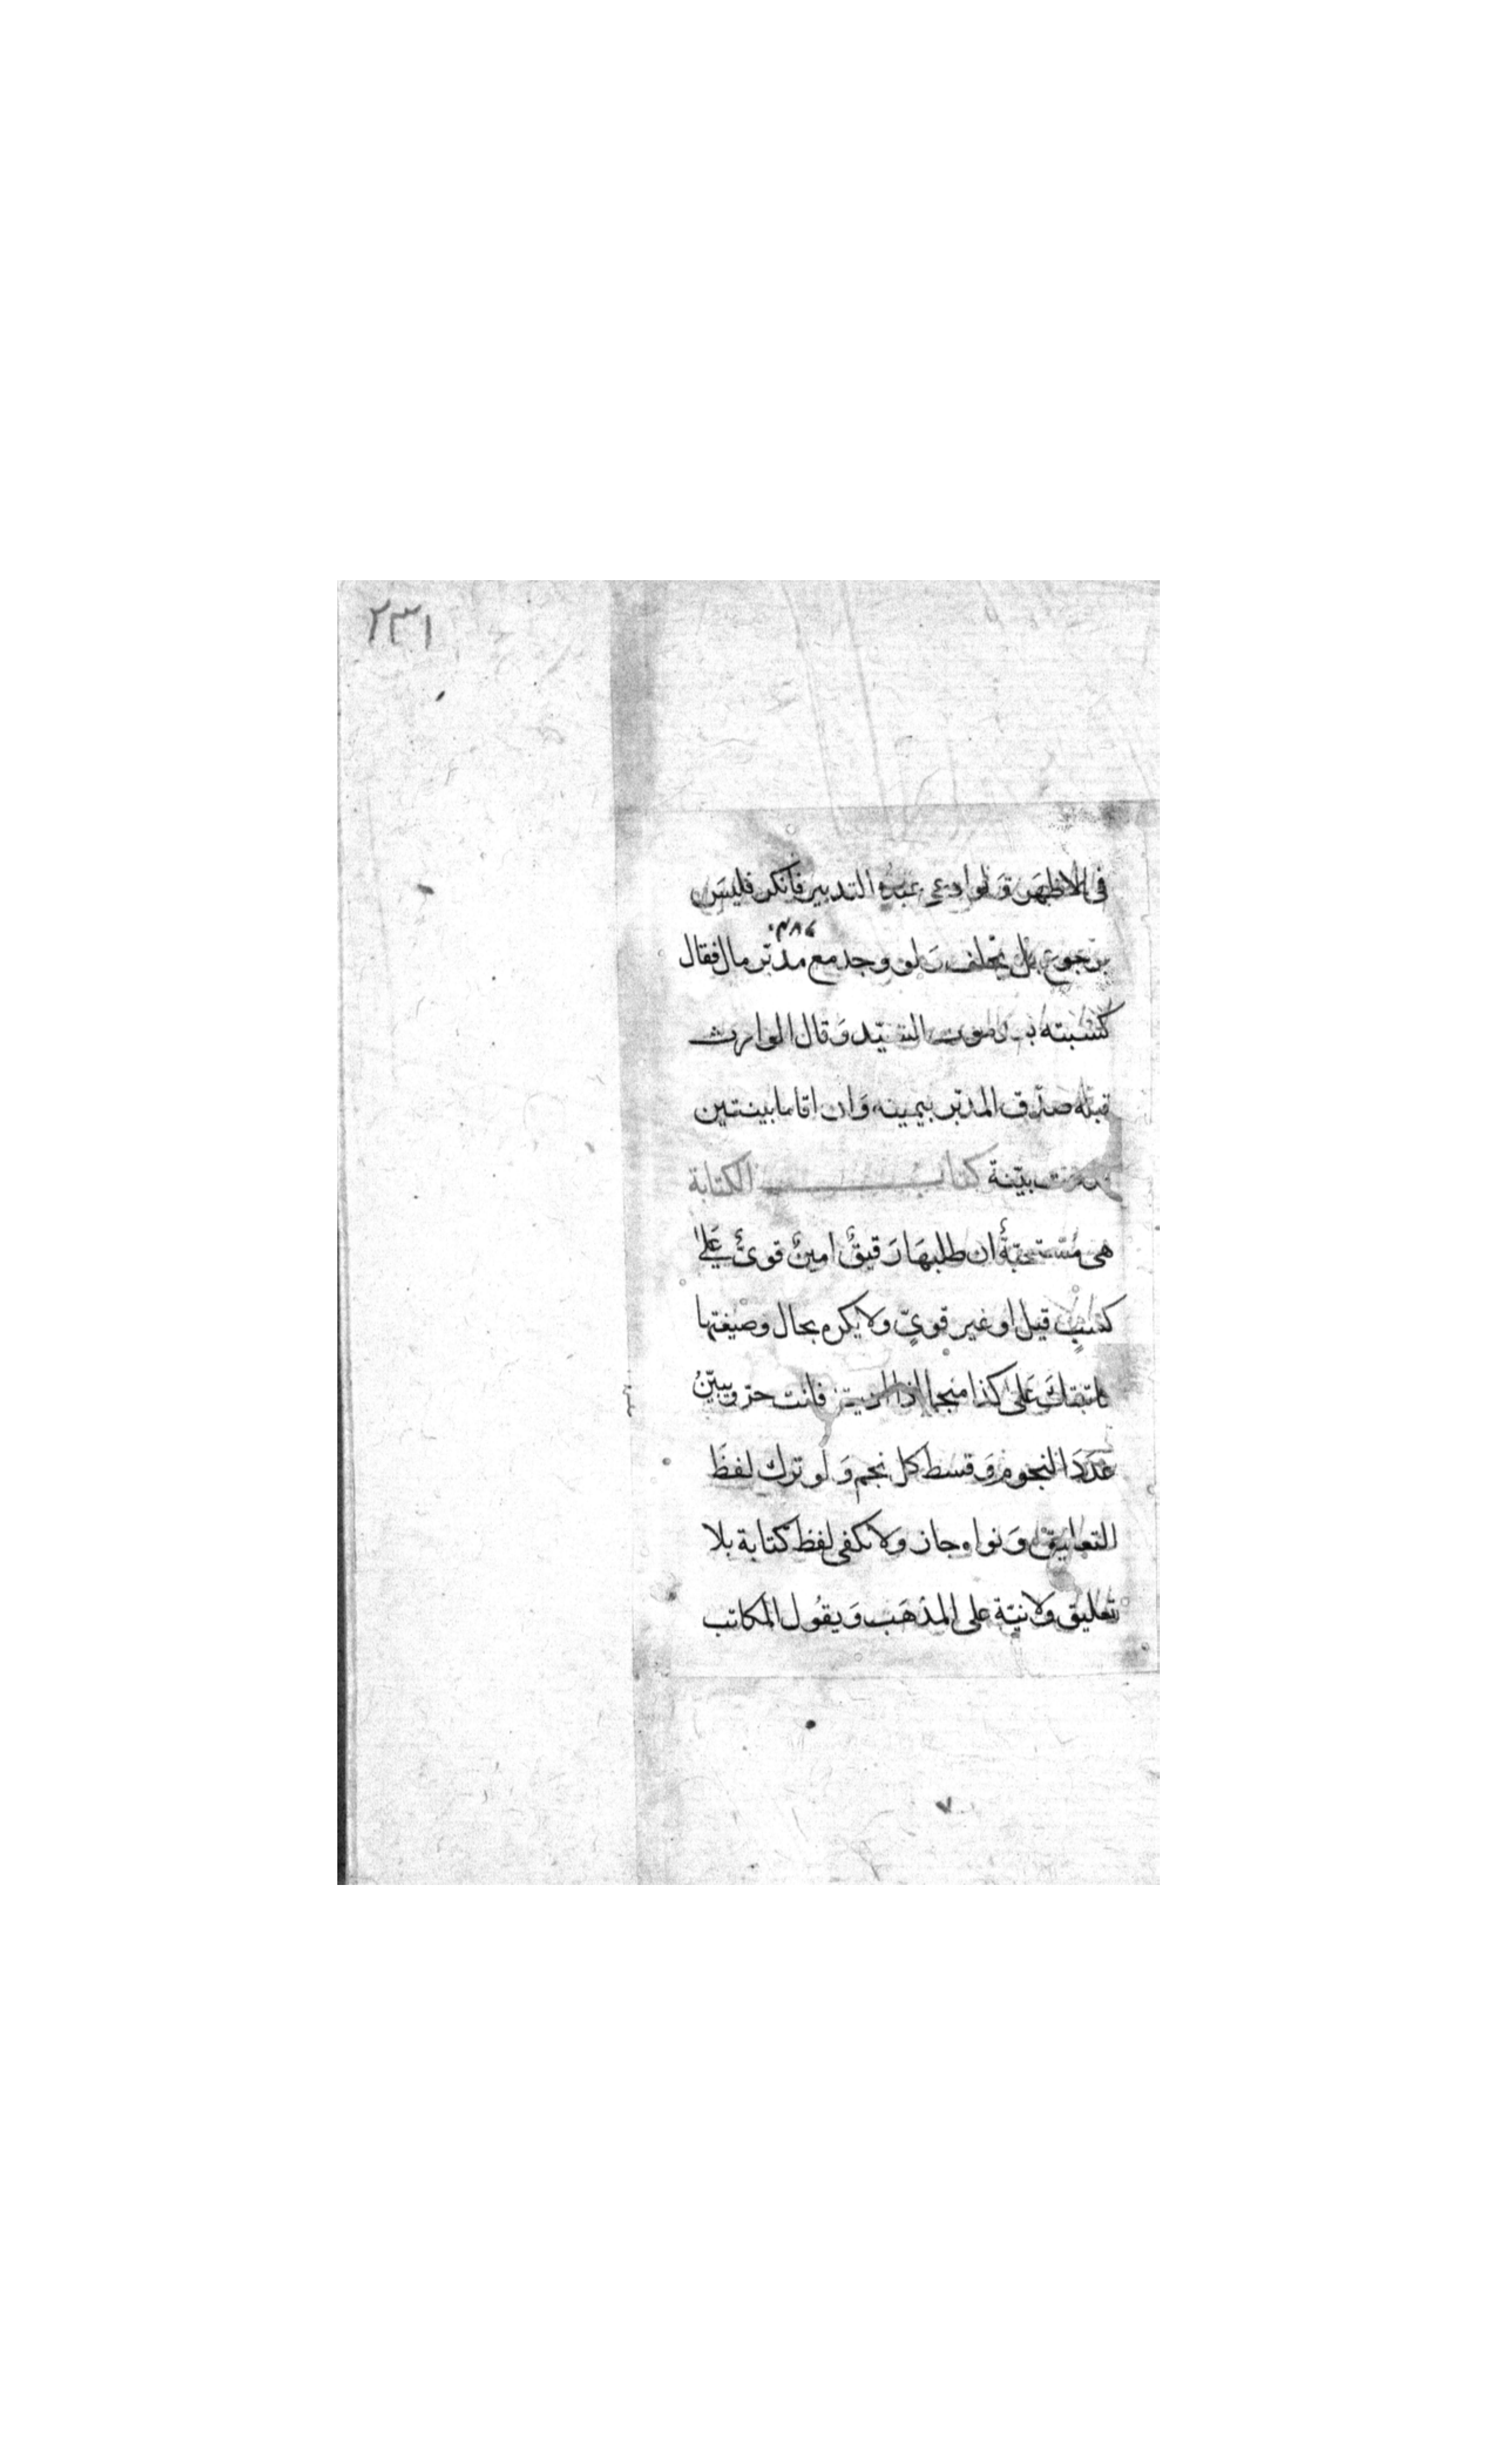 ٢٣١
فى الاظهَر وَلو ادعى عبدُه التدبير فأنكر فليسَ
برجوع بل يحلف وَلو وجد مع مدبّر مال فقال
كسَبته بعد موت السَّيّد وَقال الوارث
قبله صدّق المدبّر بيمينه وَان اقاما بينتين
قدمت بيّنة كتاب الكتابة
هى مُسْتحبّةٌ ان طلبهَا رَقيقٌ امينٌ قوىٌّ عَلى
كسْبٍ قيل او غير قوىٍّ ولا يكره بحال وصيغتها
كاتبتك عَلى كذا منجما اذا اديته فانت حرّ ويبيّنُ
عَدَدَ النجوم وَقسط كل نجم وَلو ترك لفظَ
التعليق وَنواه جاز ولا يكفى لفظ كتابة بلا
تعليق ولا نيّة على المذهَب وَيقُول المكاتب